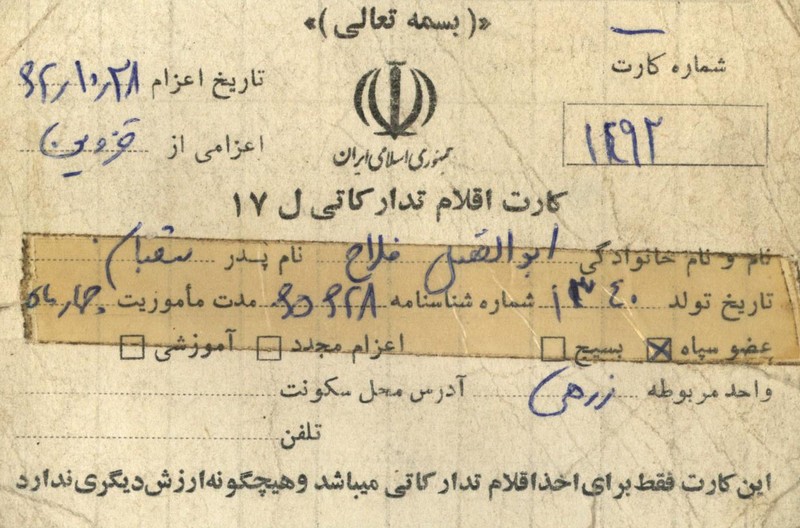 «( بسمه تعالی )»
شماره کارت
۱۴۹۲
جمهوری اسلامی ایران
تاریخ اعزام ۶۲/۱۰/۲۸
اعزامی از قزوین
کارت اقلام تدارکاتی ل ۱۷
نام و نام خانوادگی ابوالفضل فلاح نام پدر شعبان
تاریخ تولد ۱۳۴۰ شماره شناسنامه مدت مأموریت چهار ماه
عضو سپاه ☒ بسیج ☐ اعزام مجدد ☐ آموزشی ☐
واحد مربوطه زرهی آدرس محل سکونت
تلفن
این کارت فقط برای اخذ اقلام تدارکاتی میباشد و هیچگونه ارزش دیگری ندارد